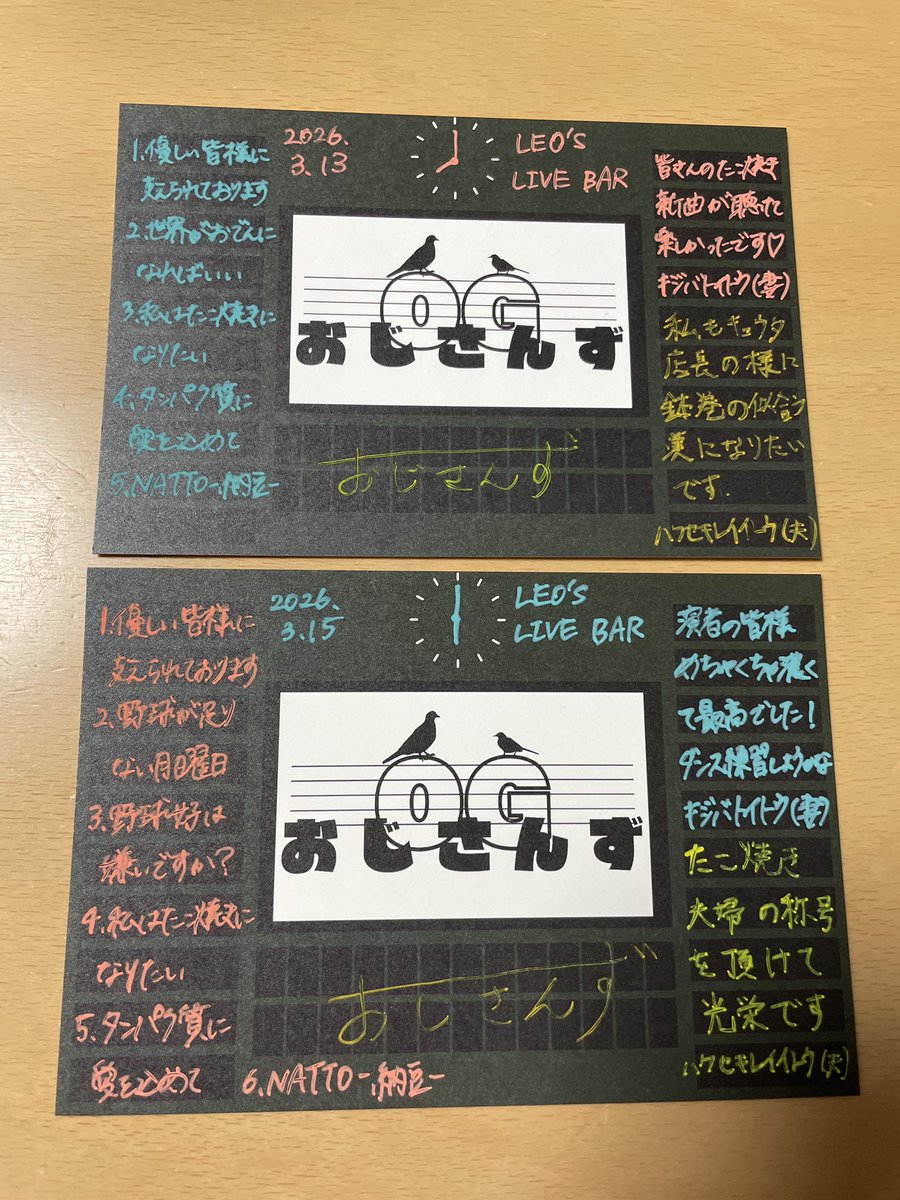 2026.
3.13
LEO'S
LIVE BAR
1.優しい皆様に
支えられております
2.世界がおでんに
なればいい
3.私はたこ焼きに
なりたい
4.タンパク質に
愛を込めて
5.NATTO-納豆-
OG
おじさんず
おじさんず
皆さんのたこ焼き
新曲が聴けて
楽しかったです♡
キジバトイトウ(妻)
私もキョウタ
店長の様に
鉢巻の似合う
漢になりたい
です.
ハクセキレイイトウ(夫)
2026.
3.15
LEO'S
LIVE BAR
1.優しい皆様に
支えられております
2.野球が足り
ない月曜日
3.野球好は
嫌いですか?
4.私はたこ焼きに
なりたい
5.タンパク質に
愛を込めて
6.NATTO-納豆-
OG
おじさんず
おじさんず
演者の皆様
めちゃくちゃ濃く
て最高でした!
ダンス練習しようかな
キジバトイトウ(妻)
たこ焼き
夫婦の称号
を頂けて
光栄です
ハクセキレイイトウ(夫)